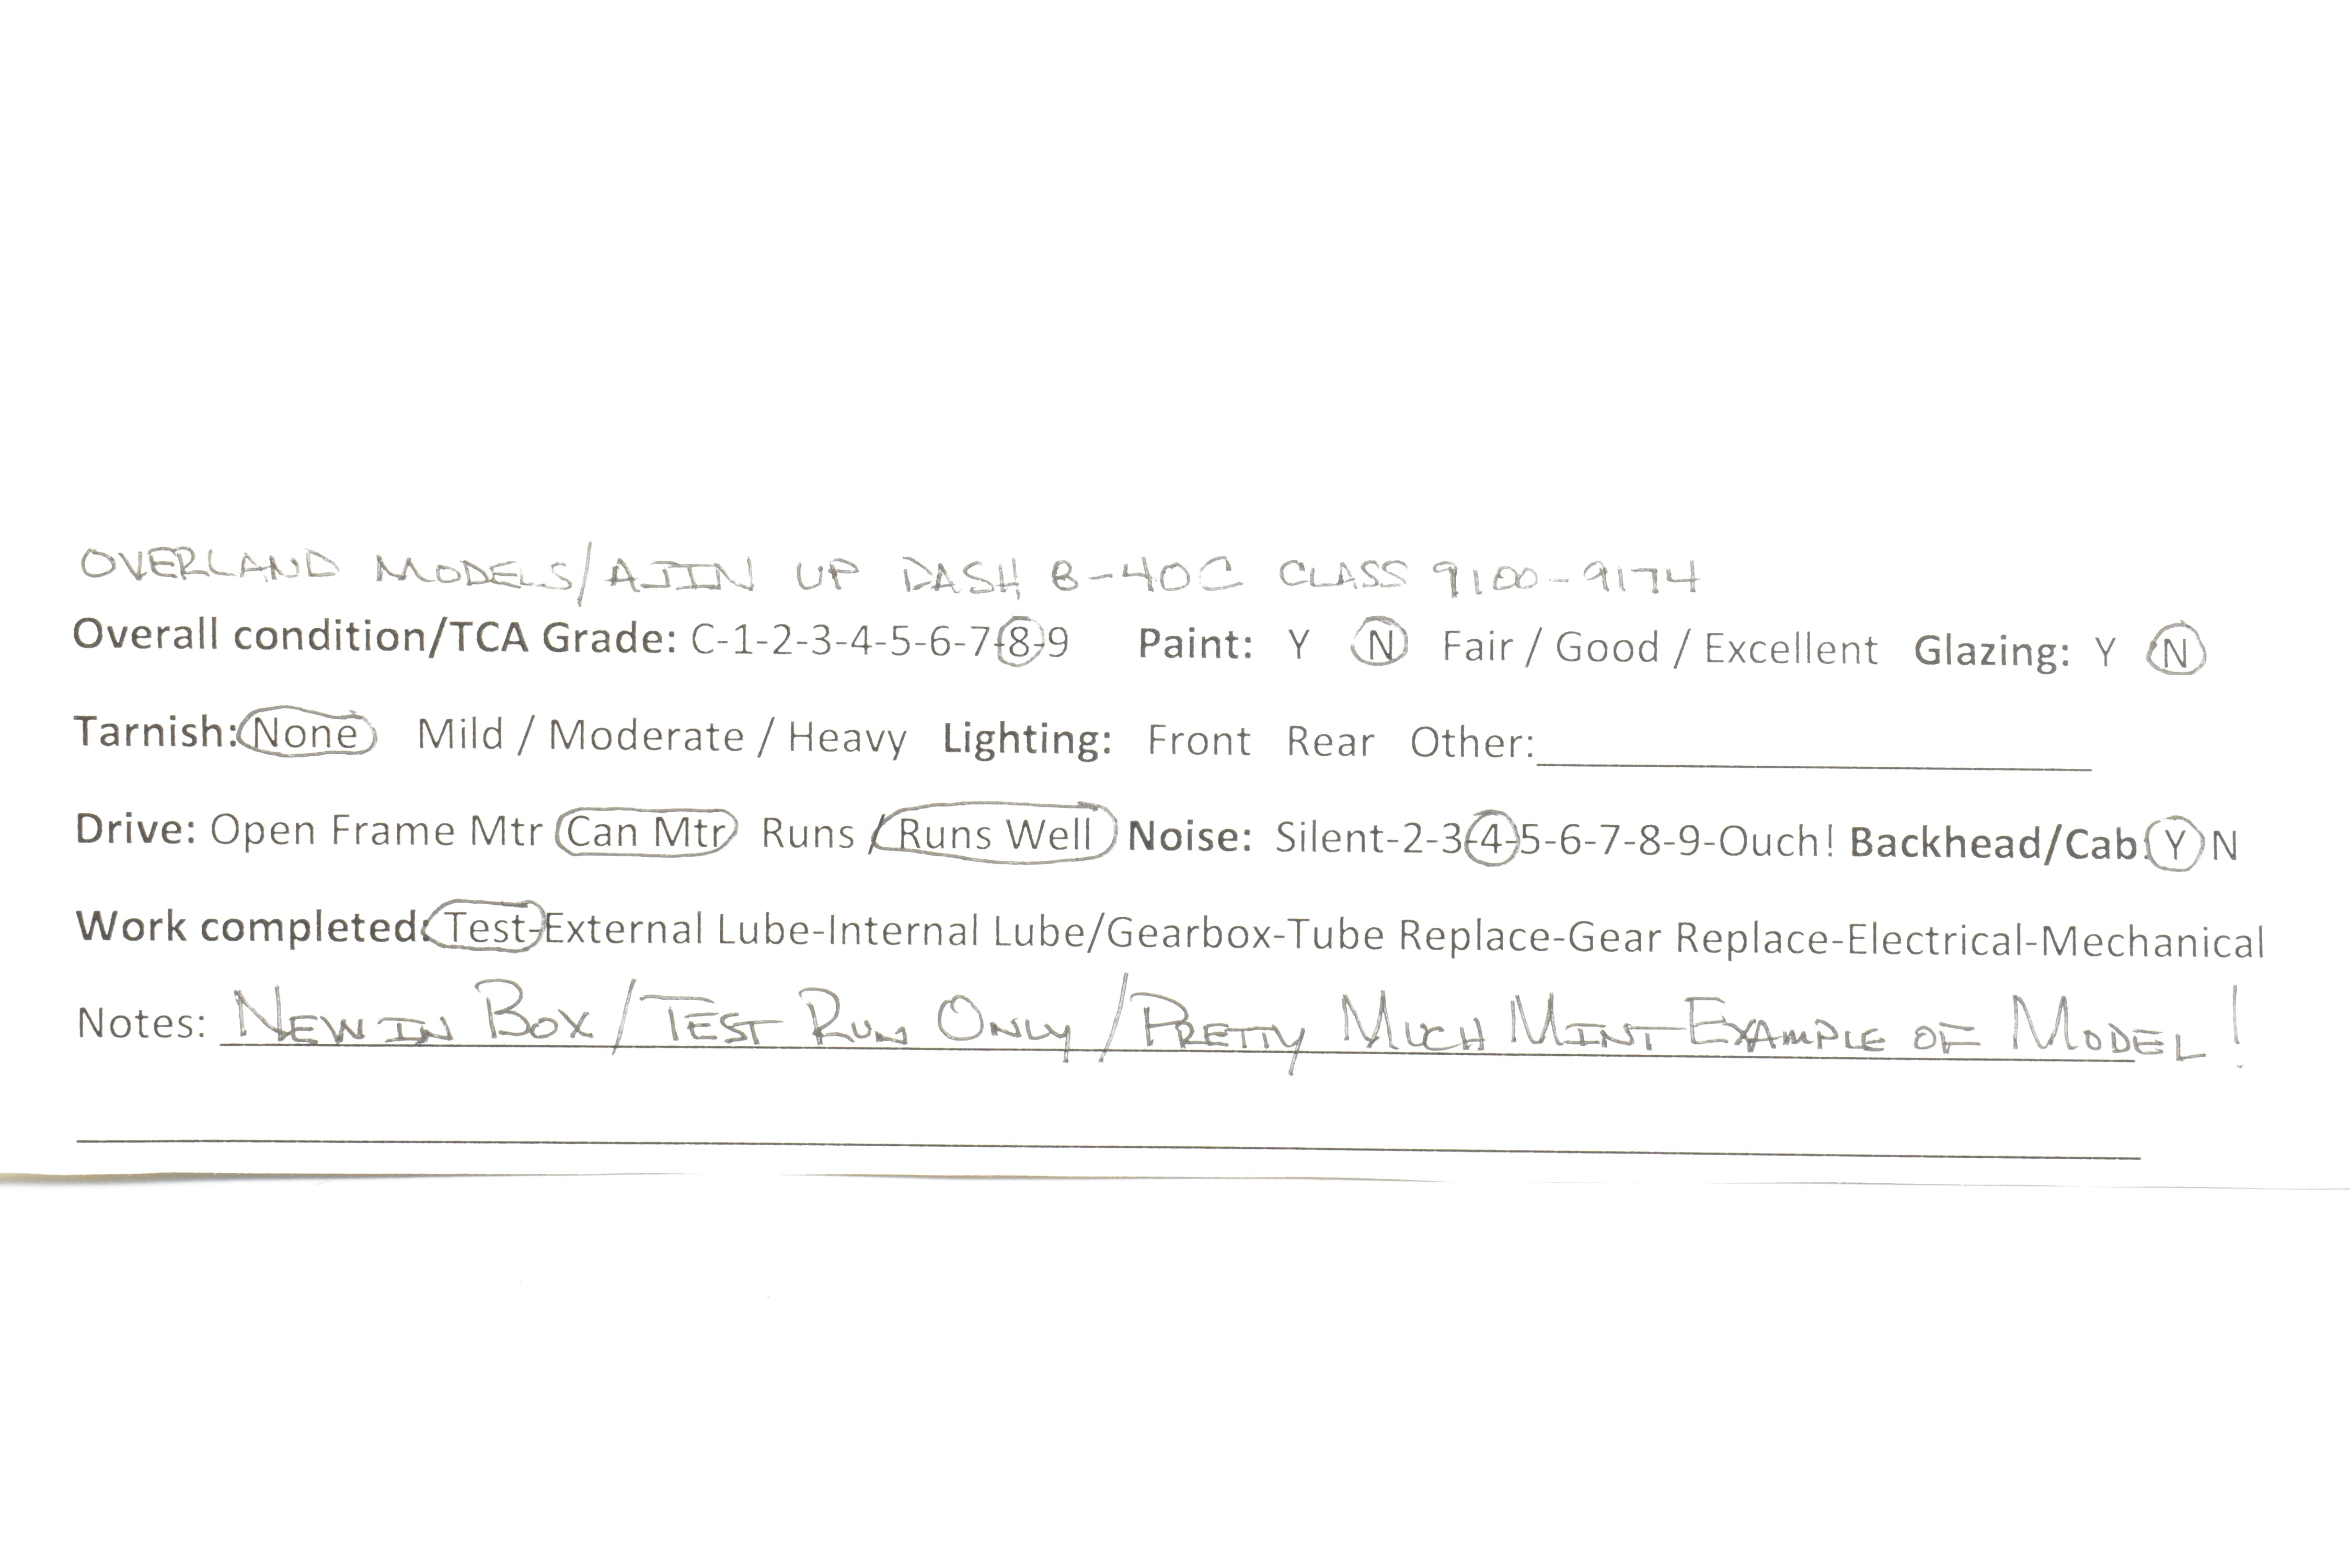 OVERLAND MODELS/AJIN UP DASH 8-40C CLASS 9100-9174
Overall condition/TCA Grade: C-1-2-3-4-5-6-7-8-9 Paint: Y N Fair / Good / Excellent Glazing: Y N
Tarnish: None Mild / Moderate / Heavy Lighting: Front Rear Other:
Drive: Open Frame Mtr Can Mtr Runs / Runs Well Noise: Silent-2-3-4-5-6-7-8-9-Ouch! Backhead/Cab: Y N
Work completed: Test-External Lube-Internal Lube/Gearbox-Tube Replace-Gear Replace-Electrical-Mechanical
Notes: NEW IN BOX/TEST RUN ONLY/PRETTY MUCH MINT EXAMPLE OF MODEL!